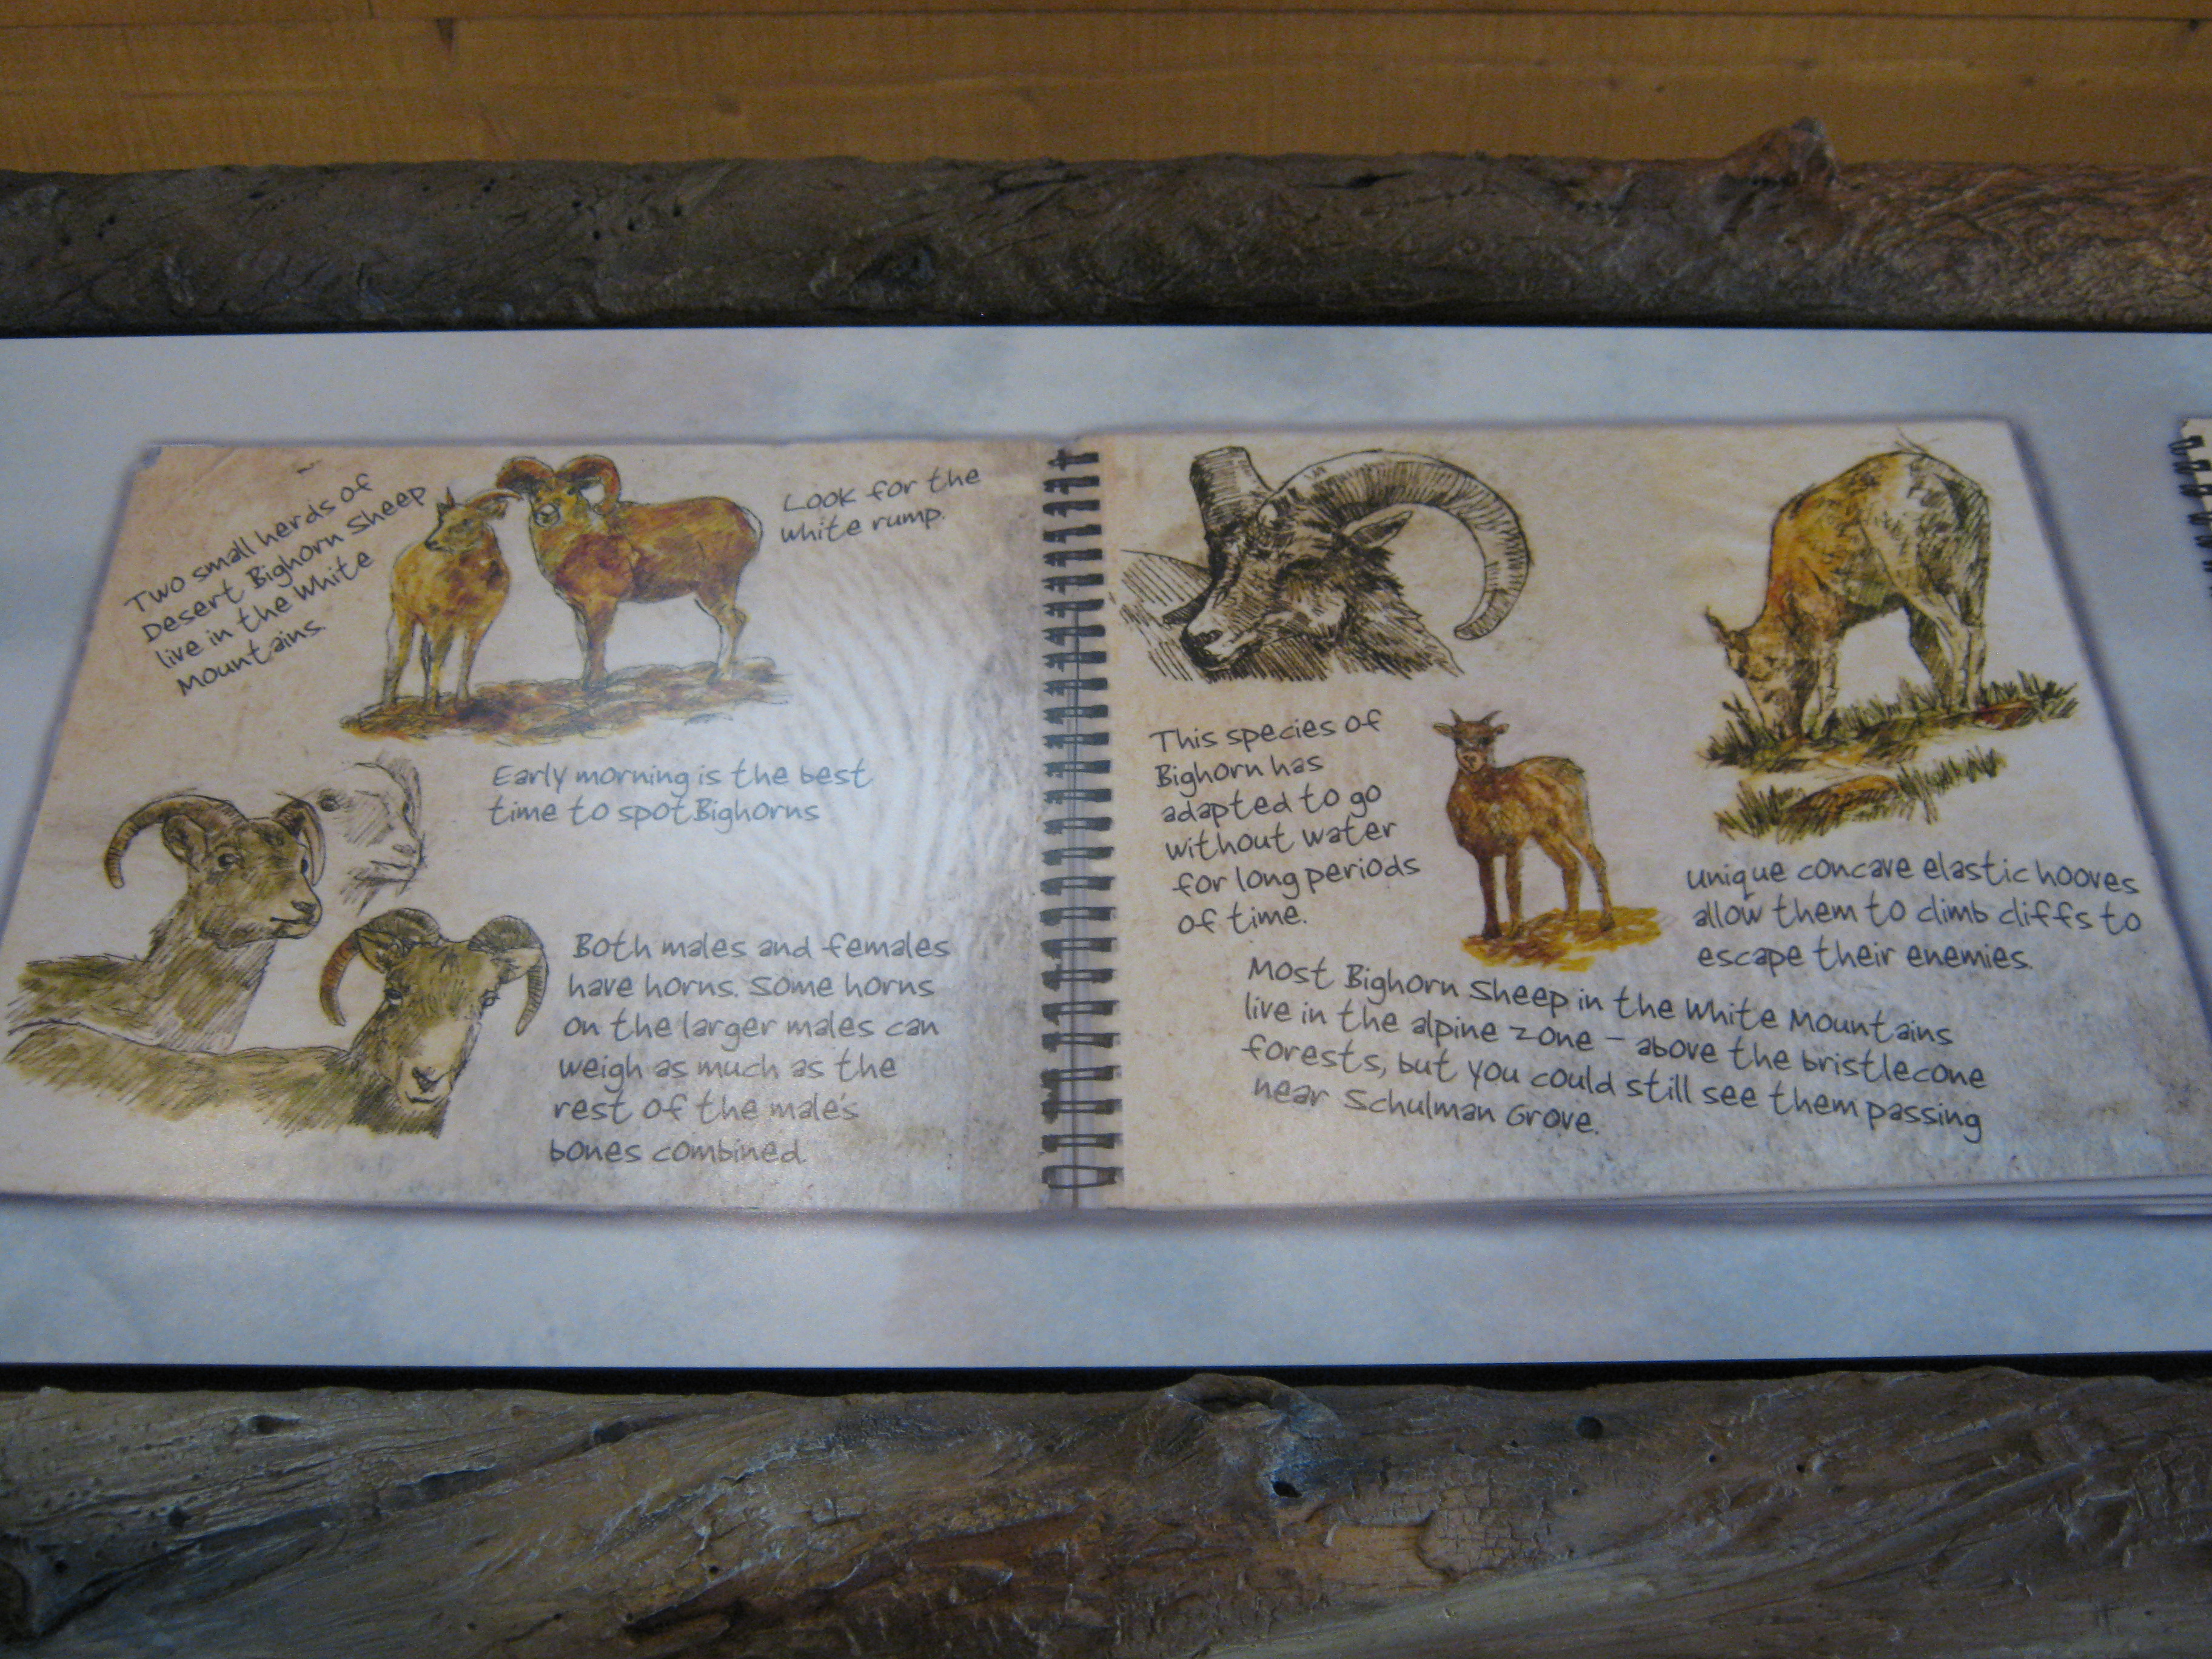 Two small herds of
Desert Bighorn Sheep
live in the White
Mountains.
Look for the
white rump.
Early morning is the best
time to spot Bighorns
Both males and females
have horns. Some horns
on the larger males can
weigh as much as the
rest of the male's
bones combined.
This species of
Bighorn has
adapted to go
without water
for long periods
of time.
unique concave elastic hooves
allow them to climb cliffs to
escape their enemies.
Most Bighorn Sheep in the White Mountains
live in the alpine zone – above the bristlecone
forests, but you could still see them passing
near Schulman Grove.